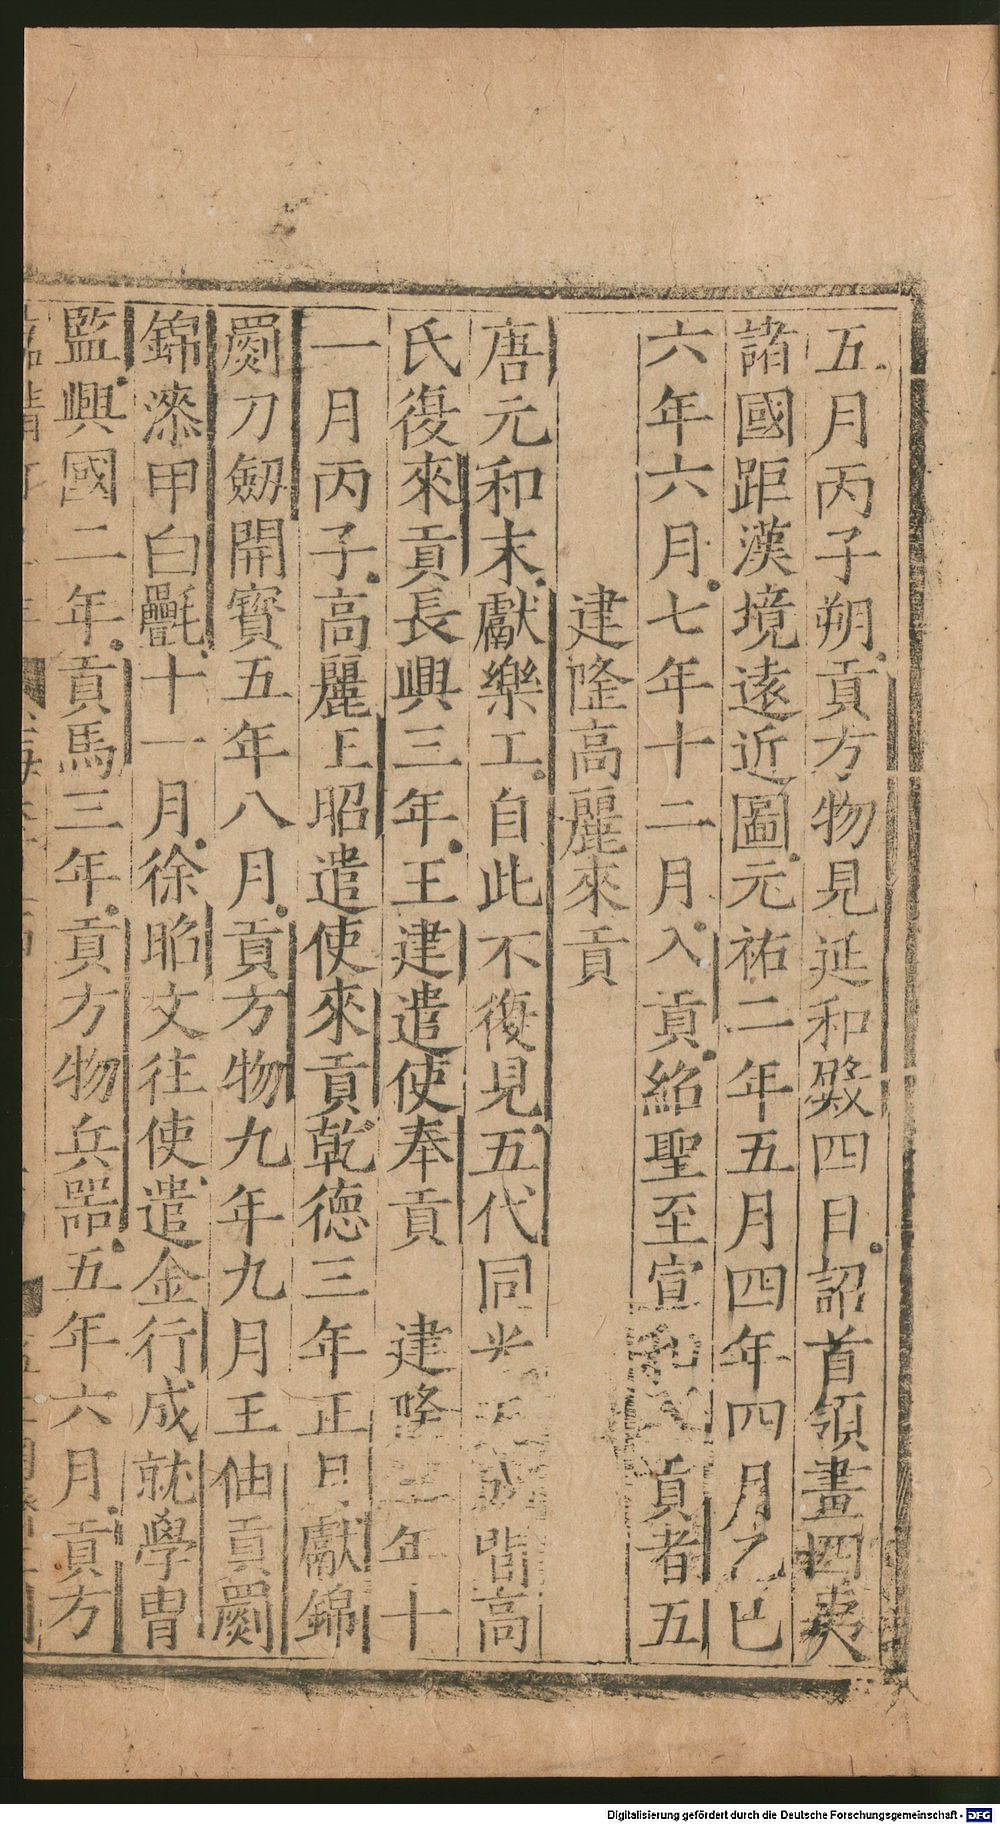 五月丙子朔貢方物見延和殿四日詔首領畫四夷
諸國距漢境遠近圖元祐二年五月四年四月乙巳
六年六月七年十二月入貢紹聖至宣和入貢者五
建隆高麗來貢
唐元和末獻樂工自此不復見五代同光天成間高
氏復來貢長興三年王建遣使奉貢 建隆三年十
一月丙子高麗王昭遣使來貢乾德三年正月獻錦
罽刀劒開寶五年八月貢方物九年九月王伷貢罽
錦漆甲白㲲十一月徐昭文往使遣金行成就學冑
監興國二年貢馬三年貢方物兵器五年六月貢方
Digitalisierung gefördert durch die Deutsche Forschungsgemeinschaft - DFG